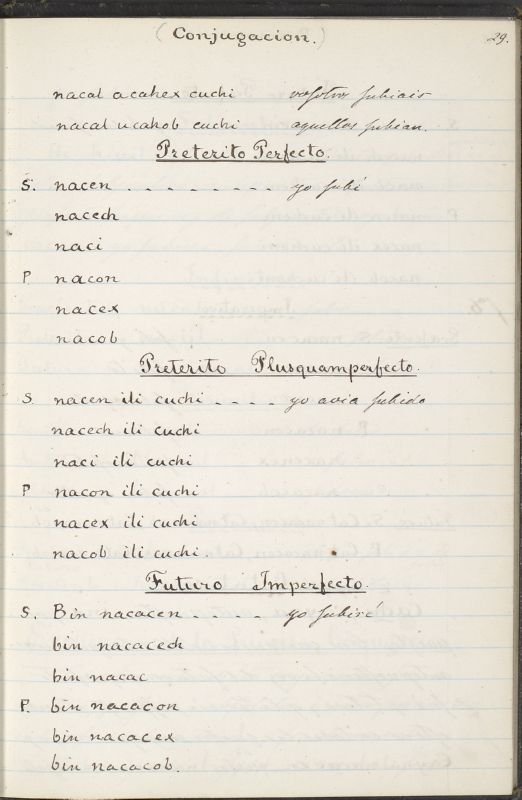 (Conjugacion.) 29.
nacal acahex cuchi vosotros subiais
nacal ucahob cuchi aquellos subian.
Preterito Perfecto.
S. nacen . - - - - - - - - yo subi
nacech
naci
P. nacon
nacex
nacob
Preterito Plusquamperfecto.
S. nacen ili cuchi - - - - yo avia subido
nacech ili cuchi
naci ili cuchi
P nacon ili cuchi
nacex ili cuchi
nacob ili cuchi.
Futuro Imperfecto.
S. Bin nacacen - - - - yo subiré
bin nacacech
bin nacac
P. bin nacacon
bin nacacex
bin nacacob.